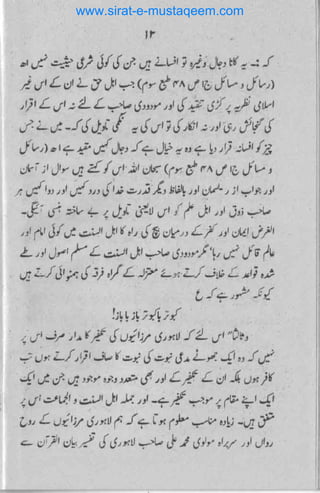 www.sirat-e-mustaqeem.com
۱۳
کہ :۔ یہ کانا دجال وغیرہ تو افسانے ہیں جن کی کوئی شرعی حیثیت نہیں اھ
(رسائل و مسائل ج اص ۴۸ طبع سوم) جب اہل حق نے ان کے اس غیر
اسلامی نظریہ پر کڑی تنقید کی اور مودودی صاحب کے لئے نہ اس کے اقرار
کی گنجائش رہی اور نہ انکار کی تو اس کی یہ تاویل کی۔ کہ میں نے جس
چیز کو افسانہ قرار دیا ہے وہ یہ خیال ہے کہ دجال کہیں مقید ہے اھ (رسائل
و مسائل ج اص ۴۸ طبع سوم) سبحان اللہ اس کو کہتے ہیں سوال از آسمان
اور جواب از ریسمان اور بالفاظ دیگر قدرت خدا کی درد کہیں اور دوا کہیں ہر
صاحب ذوق اور اہل علم کو اس لایعنی تاویل پر بے ساختہ ہنسی آئیگی۔
الغرض ایمان اور کفر کے درمیان بیچ کی راہ کا اہل السنت میں کوئی امام اور
عالم قائل نہیں رہا، مگر مودودی صاحب اہل السنت کے مسلم اصول اور طے
شدہ قواعد کے خلاف کرتے ہوئے معتزلہ کے گمراہ فرقہ کی ہمنوائی کرتے ہیں
کیونکہ مشہور ہے کہ ع
کبوتر باکبوتر باز باباز!
وثالثاً" اس لئے کہ لاہوری مرزائیوں کی تکفیر کا مدار صرف اس پر
نہیں کہ وہ ایک جھوٹے مدعی نبوت کی نبوت کا صاف اقرار کرتے ہوں تب
کافر ہوں بلکہ ان کی تکفیر کے اور بھی متعدد وجوہ موجود ہیں جن میں ایک
ایک اپنے مقام پر موجب تکفیر ہے۔ اور جملہ اہل السنت والجماعت اس پر
متفق ہیں۔ زیادہ مناسب معلوم ہوتا ہے کہ ہم لاہوری مرزائیوں کے روح
رواں اور سربراہ مولوی محمد علی صاحب لاہوری کی تفسیر بیان القرآن سے